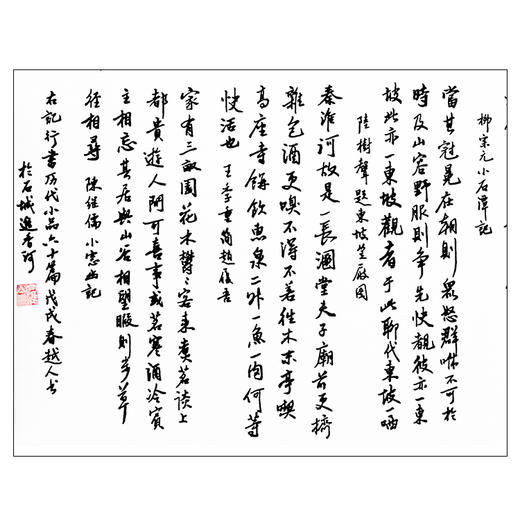 柳宗元小石潭記
當其冠冕在朝則眾怒群咻不可於
時及山容野服則争先快覩彼亦一東
坡此亦一東坡觀者于此聊代東坡一哂
陸樹聲題東坡笠屐图
秦淮河故是一長溷堂夫子廟前更擠
雜包酒更嗅不得不若往木末亭喫
高座寺餅飲魚泉二升一魚一肉何等
快活也 王季重簡趙履吾
家有三畝園花木鬱鬱客来煮茗談上
都貴遊人間可喜事或茗寒酒冷賓
主相忘其居與山谷相望暇則步草
徑相尋 陳继儒小窓幽記
右記行書历代小品六十篇戊戌春越人书
於石城逸香阿